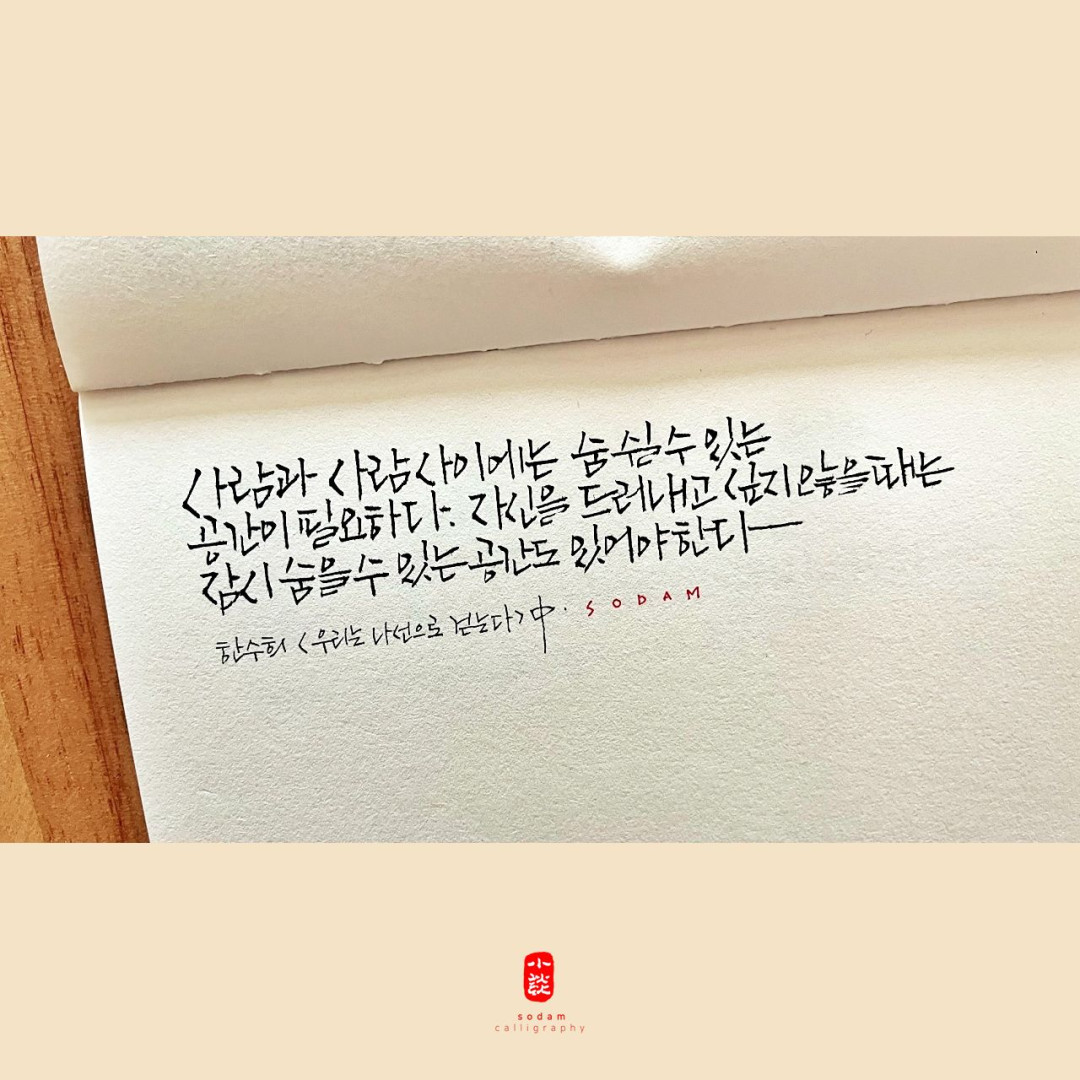 사람과 사람 사이에는 숨 쉴 수 있는
공간이 필요하다. 자신을 드러내고 싶지 않을 때는
잠시 숨을 수 있는 공간도 있어야 한다
한수희 <우리는 나선으로 걷는다> 中. SODAM
小談
sodam
calligraphy